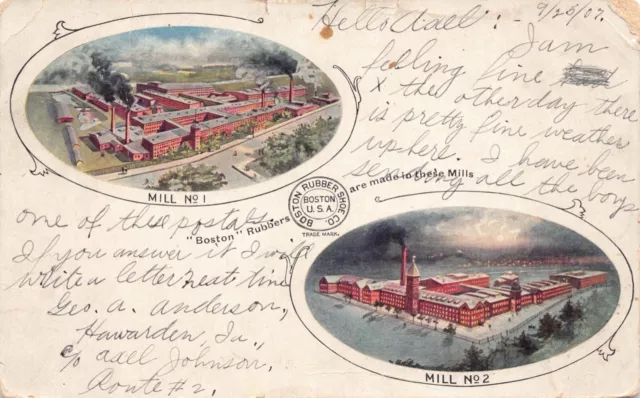 Hello Axel : - 9/25/07.
I am
feeling fine
x the other day there
is pretty fine weather
up here. I have been
sending all the boys
MILL No 1
"Boston" Rubbers are made in these Mills
BOSTON RUBBER SHOE CO.
BOSTON
U.S.A.
TRADE MARK.
one of these postals.
If you answer it I will
write a letter next time
Geo. A. Anderson,
Hawarden, Ia.,
c/o Axel Johnson.
Route #2.
MILL No 2